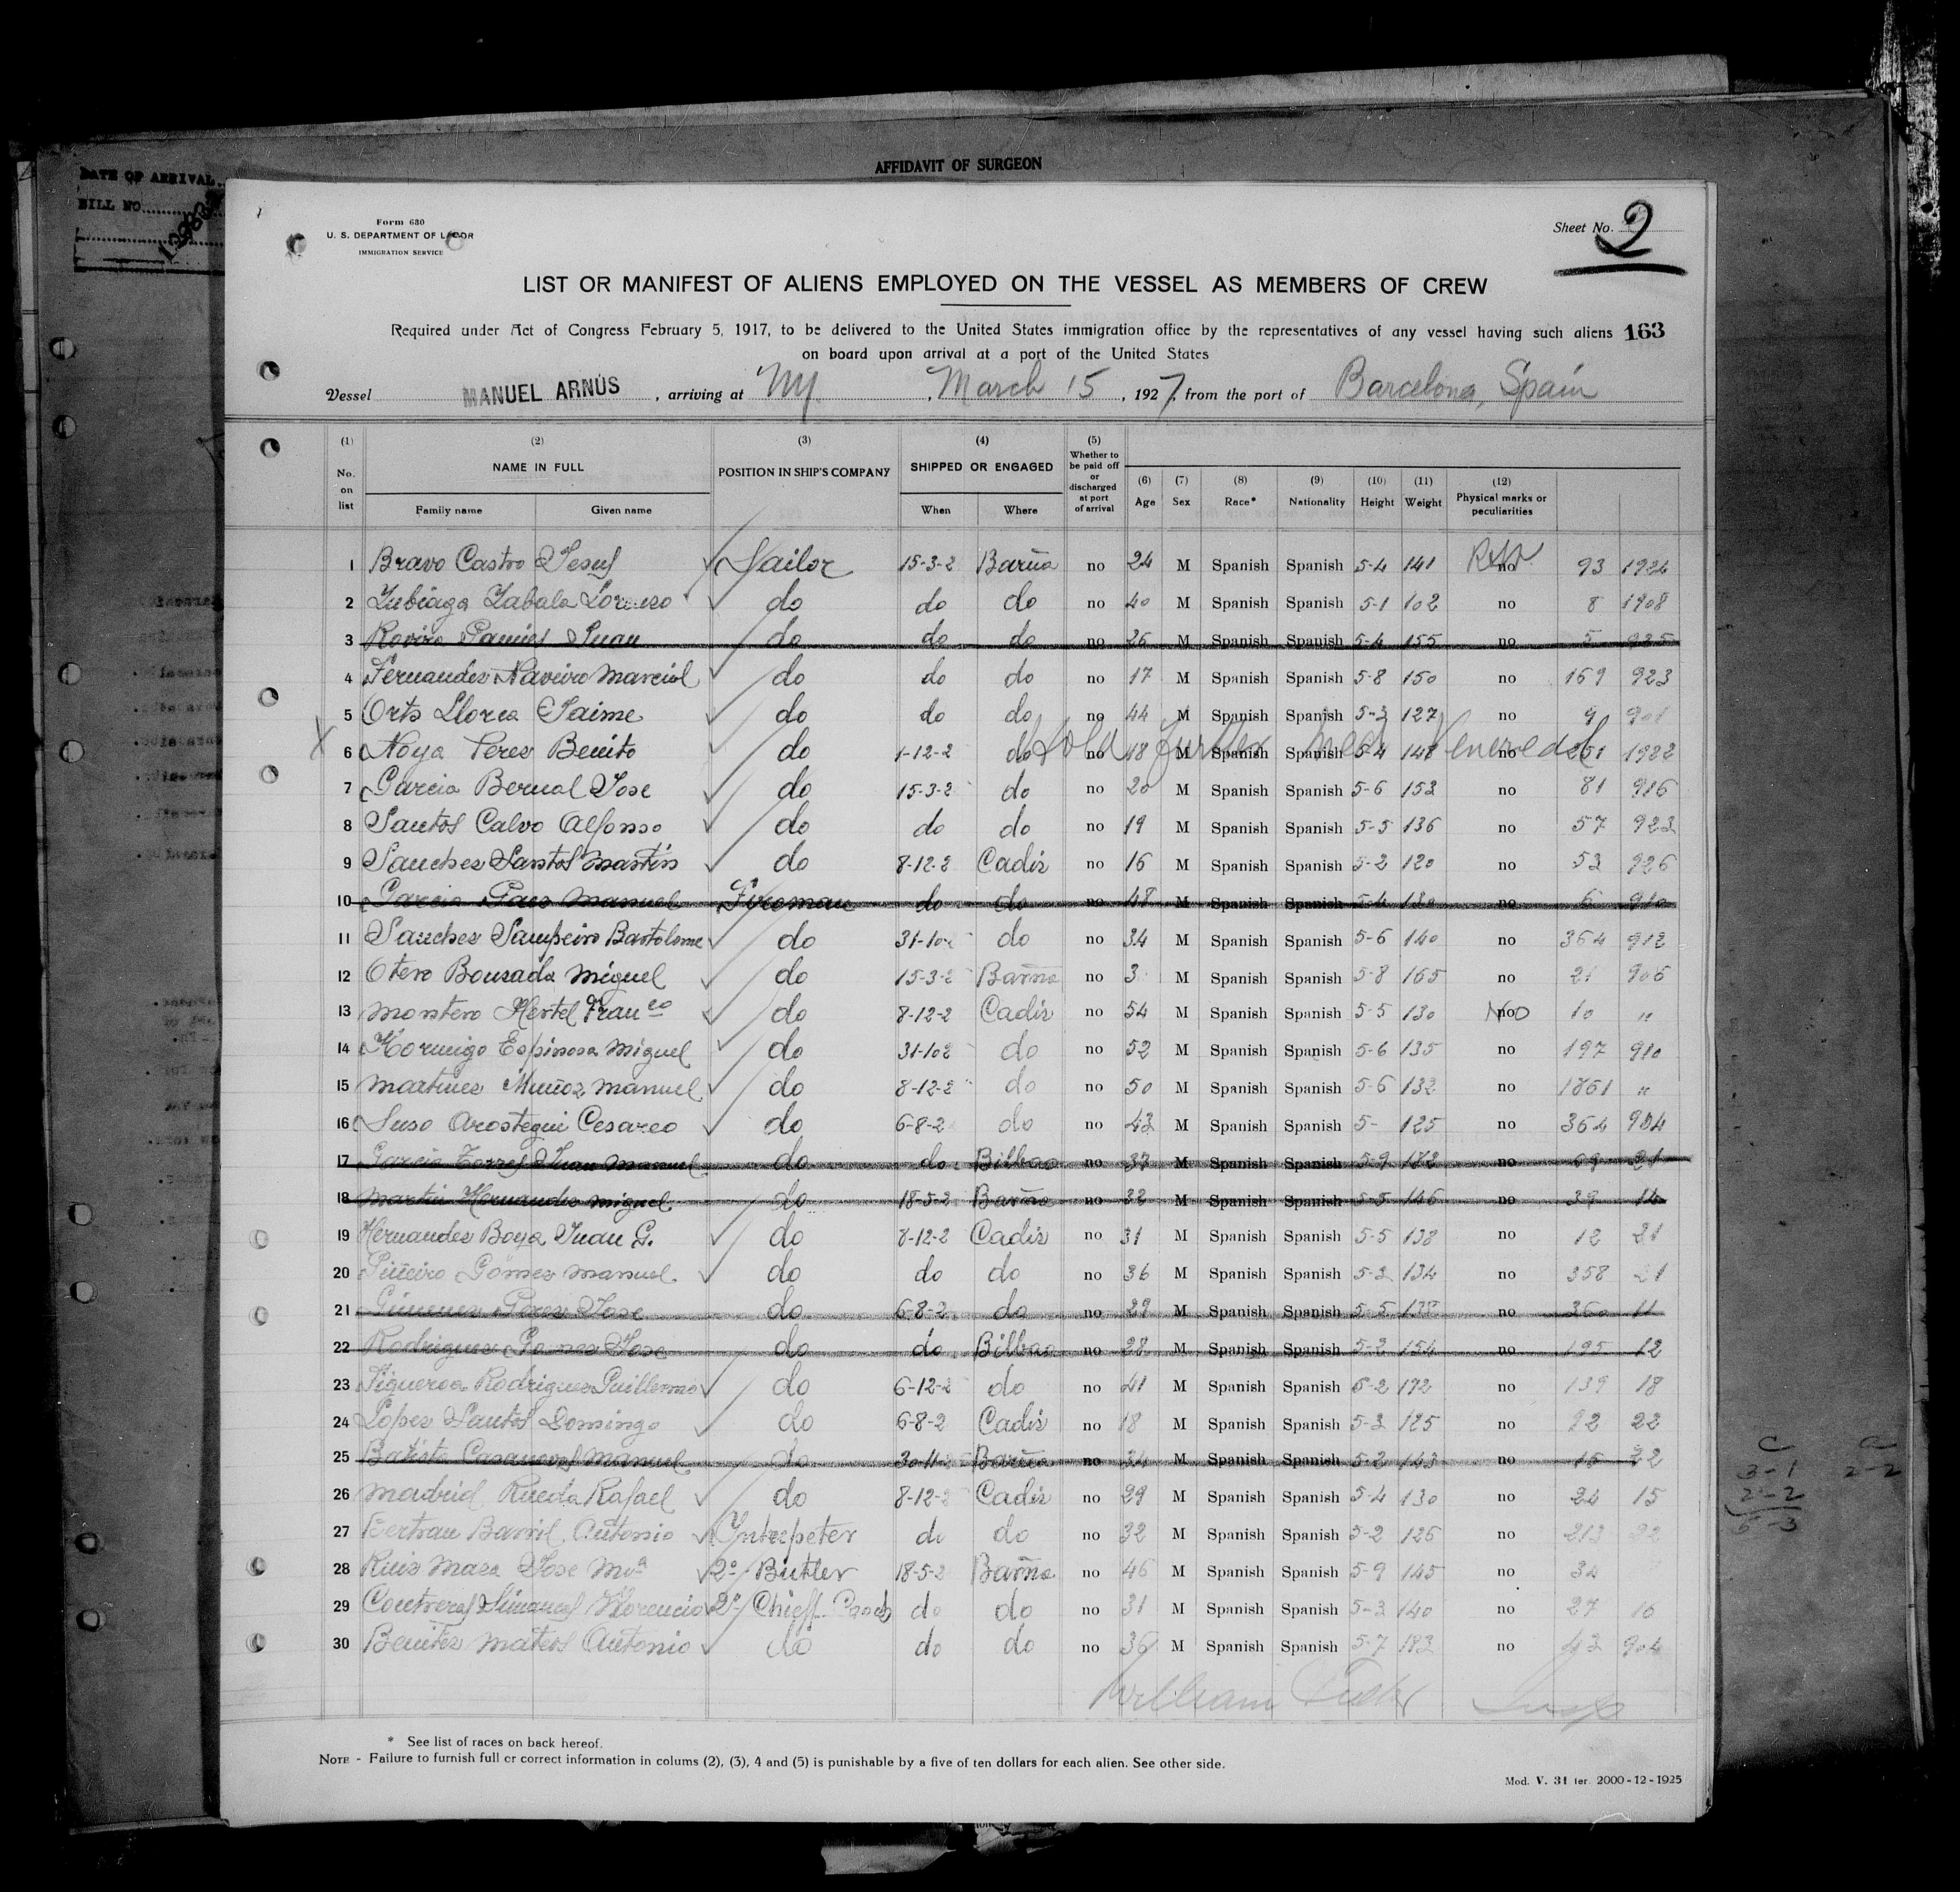 AFFIDAVIT OF SURGEON
DATE OF ARRIVAL
BILL NO.
Form 680
U. S. DEPARTMENT OF LABOR
IMMIGRATION SERVICE
Sheet No. 2
LIST OR MANIFEST OF ALIENS EMPLOYED ON THE VESSEL AS MEMBERS OF CREW
Required under Act of Congress February 5, 1917, to be delivered to the United States immigration office by the representatives of any vessel having such aliens 163
on board upon arrival at a port of the United States
Vessel MANUEL ARNÚS, arriving at Ny., March 15, 1927, from the port of Barcelona, Spain
(1) (2) (3) (4) (5) (6) (7) (8) (9) (10) (11) (12)
No. on list NAME IN FULL Family name Given name POSITION IN SHIP'S COMPANY SHIPPED OR ENGAGED When Where Whether to be paid off or discharged at port of arrival Age Sex Race* Nationality Height Weight Physical marks or peculiarities
1 Bravo Castro Jesus Sailor 15-3-2 Barña no 24 M Spanish Spanish 5-4 141 no 93 1924
2 Zubiaga Zabala Lorenzo do do do no 40 M Spanish Spanish 5-1 102 no 8 1908
3 Rovira Pamies Juan do do do no 26 M Spanish Spanish 5-4 155 no 5 925
4 Fernandez Naveiro Marcial do do do no 17 M Spanish Spanish 5-8 150 no 169 923
5 Orts Llorca Jaime do do do no 44 M Spanish Spanish 5-3 127 no 9 901
X 6 Noya Perez Benito do 1-12-2 do no 18 M Spanish Spanish 5-4 148 no 251 1922
Hold further med Venereal
7 Garcia Bernal Jose do 15-3-2 do no 20 M Spanish Spanish 5-6 153 no 81 916
8 Santos Calvo Alfonso do do do no 19 M Spanish Spanish 5-5 136 no 57 923
9 Sanchez Santos Martin do 8-12-2 Cadiz no 16 M Spanish Spanish 5-2 120 no 53 926
10 Garcia Paez Manuel Fireman do do no 48 M Spanish Spanish 5-4 130 no 6 910
11 Sanchez Sampeiro Bartolome do 31-10-2 do no 34 M Spanish Spanish 5-6 140 no 364 912
12 Otero Bouzada Miguel do 15-3-2 Barña no 3 M Spanish Spanish 5-8 165 no 21 906
13 Montero Hertel Franco do 8-12-2 Cadiz no 54 M Spanish Spanish 5-5 130 no 10 "
14 Hormigo Espinosa Miguel do 31-102 do no 52 M Spanish Spanish 5-6 135 no 197 910
15 Martinez Muñoz Manuel do 8-12-2 do no 50 M Spanish Spanish 5-6 132 no 1861 "
16 Suso Arostegui Cesareo do 6-8-2 do no 43 M Spanish Spanish 5- 125 no 364 904
17 Garcia Torres Juan Manuel do do Bilbao no 37 M Spanish Spanish 5-9 182 no 69 21
18 Martin Hernandez Miguel do 18-5-2 Barña no 32 M Spanish Spanish 5-5 146 no 39 14
19 Hernandez Boya Juan G. do 8-12-2 Cadiz no 31 M Spanish Spanish 5-5 138 no 12 21
20 Piñeiro Gomez Manuel do do do no 36 M Spanish Spanish 5-2 134 no 358 21
21 Gimenez Perez Jose do 6-8-2 do no 29 M Spanish Spanish 5-5 138 no 360 11
22 Rodriguez Gomez Jose do do Bilbao no 28 M Spanish Spanish 5-2 154 no 195 12
23 Figueroa Rodriguez Guillermo do 6-12-2 do no 41 M Spanish Spanish 5-2 172 no 139 18
24 Lopez Santos Domingo do 6-8-2 Cadiz no 18 M Spanish Spanish 5-3 125 no 92 22
25 Batista Casanovas Manuel do 30-11-2 Barña no 34 M Spanish Spanish 5-2 143 no 15 22
26 Madrid Rueda Rafael do 8-12-2 Cadiz no 29 M Spanish Spanish 5-4 130 no 24 15
27 Bertran Barril Antonio Yntrepeter do do no 32 M Spanish Spanish 5-2 126 no 213 92
28 Ruiz Maza Jose Ma 2º Butler 18-5-2 Barña no 46 M Spanish Spanish 5-9 145 no 34
29 Contreras Simancas Florencio 2º Chieff Cook do do no 31 M Spanish Spanish 5-3 140 no 27 16
30 Benitez Mateos Antonio do do do no 36 M Spanish Spanish 5-7 183 no 42 904
William
C
3-1
2-2
5-3
2-2
* See list of races on back hereof.
NOTE - Failure to furnish full or correct information in colums (2), (3), 4 and (5) is punishable by a five of ten dollars for each alien. See other side.
Mod. V. 31 ter. 2000-12-1925